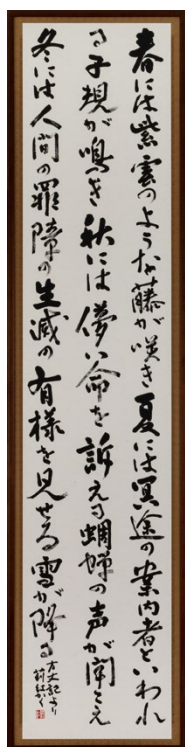 春には紫雲のような藤が咲き夏には冥途の案内者といわれ
る子規が鳴き秋には儚い命を訴える蜩蝉の声が聞こえ
冬には人間の罪障の生滅の有様を見せる雪が降る
方丈記より